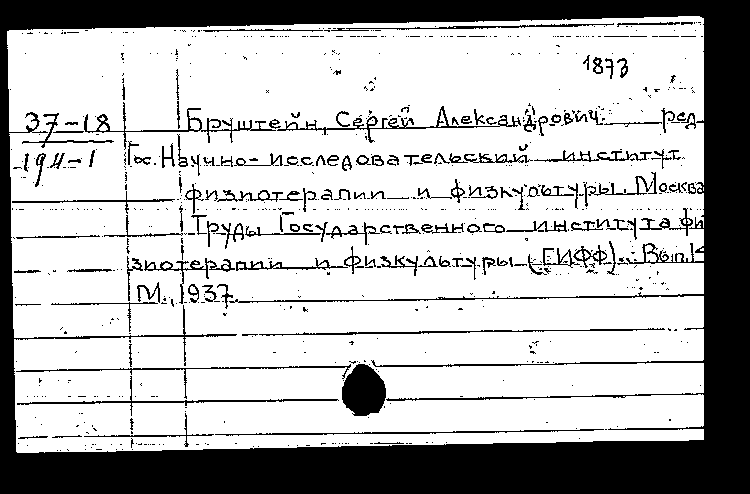 1873
37-18
194-1
Бруштейн, Сергей Александрович. ред-
Гос. Научно-исследовательский институт
физиотерапии и физкультуры. Москва
Труды Государственного института фи
зиотерапии и физкультуры (ГИФФ)... Вып.
М., 1937.